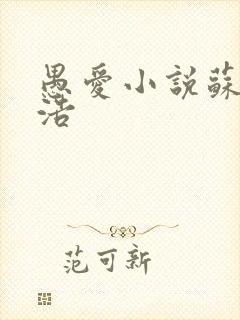 愚愛小說蘇
活
范可新